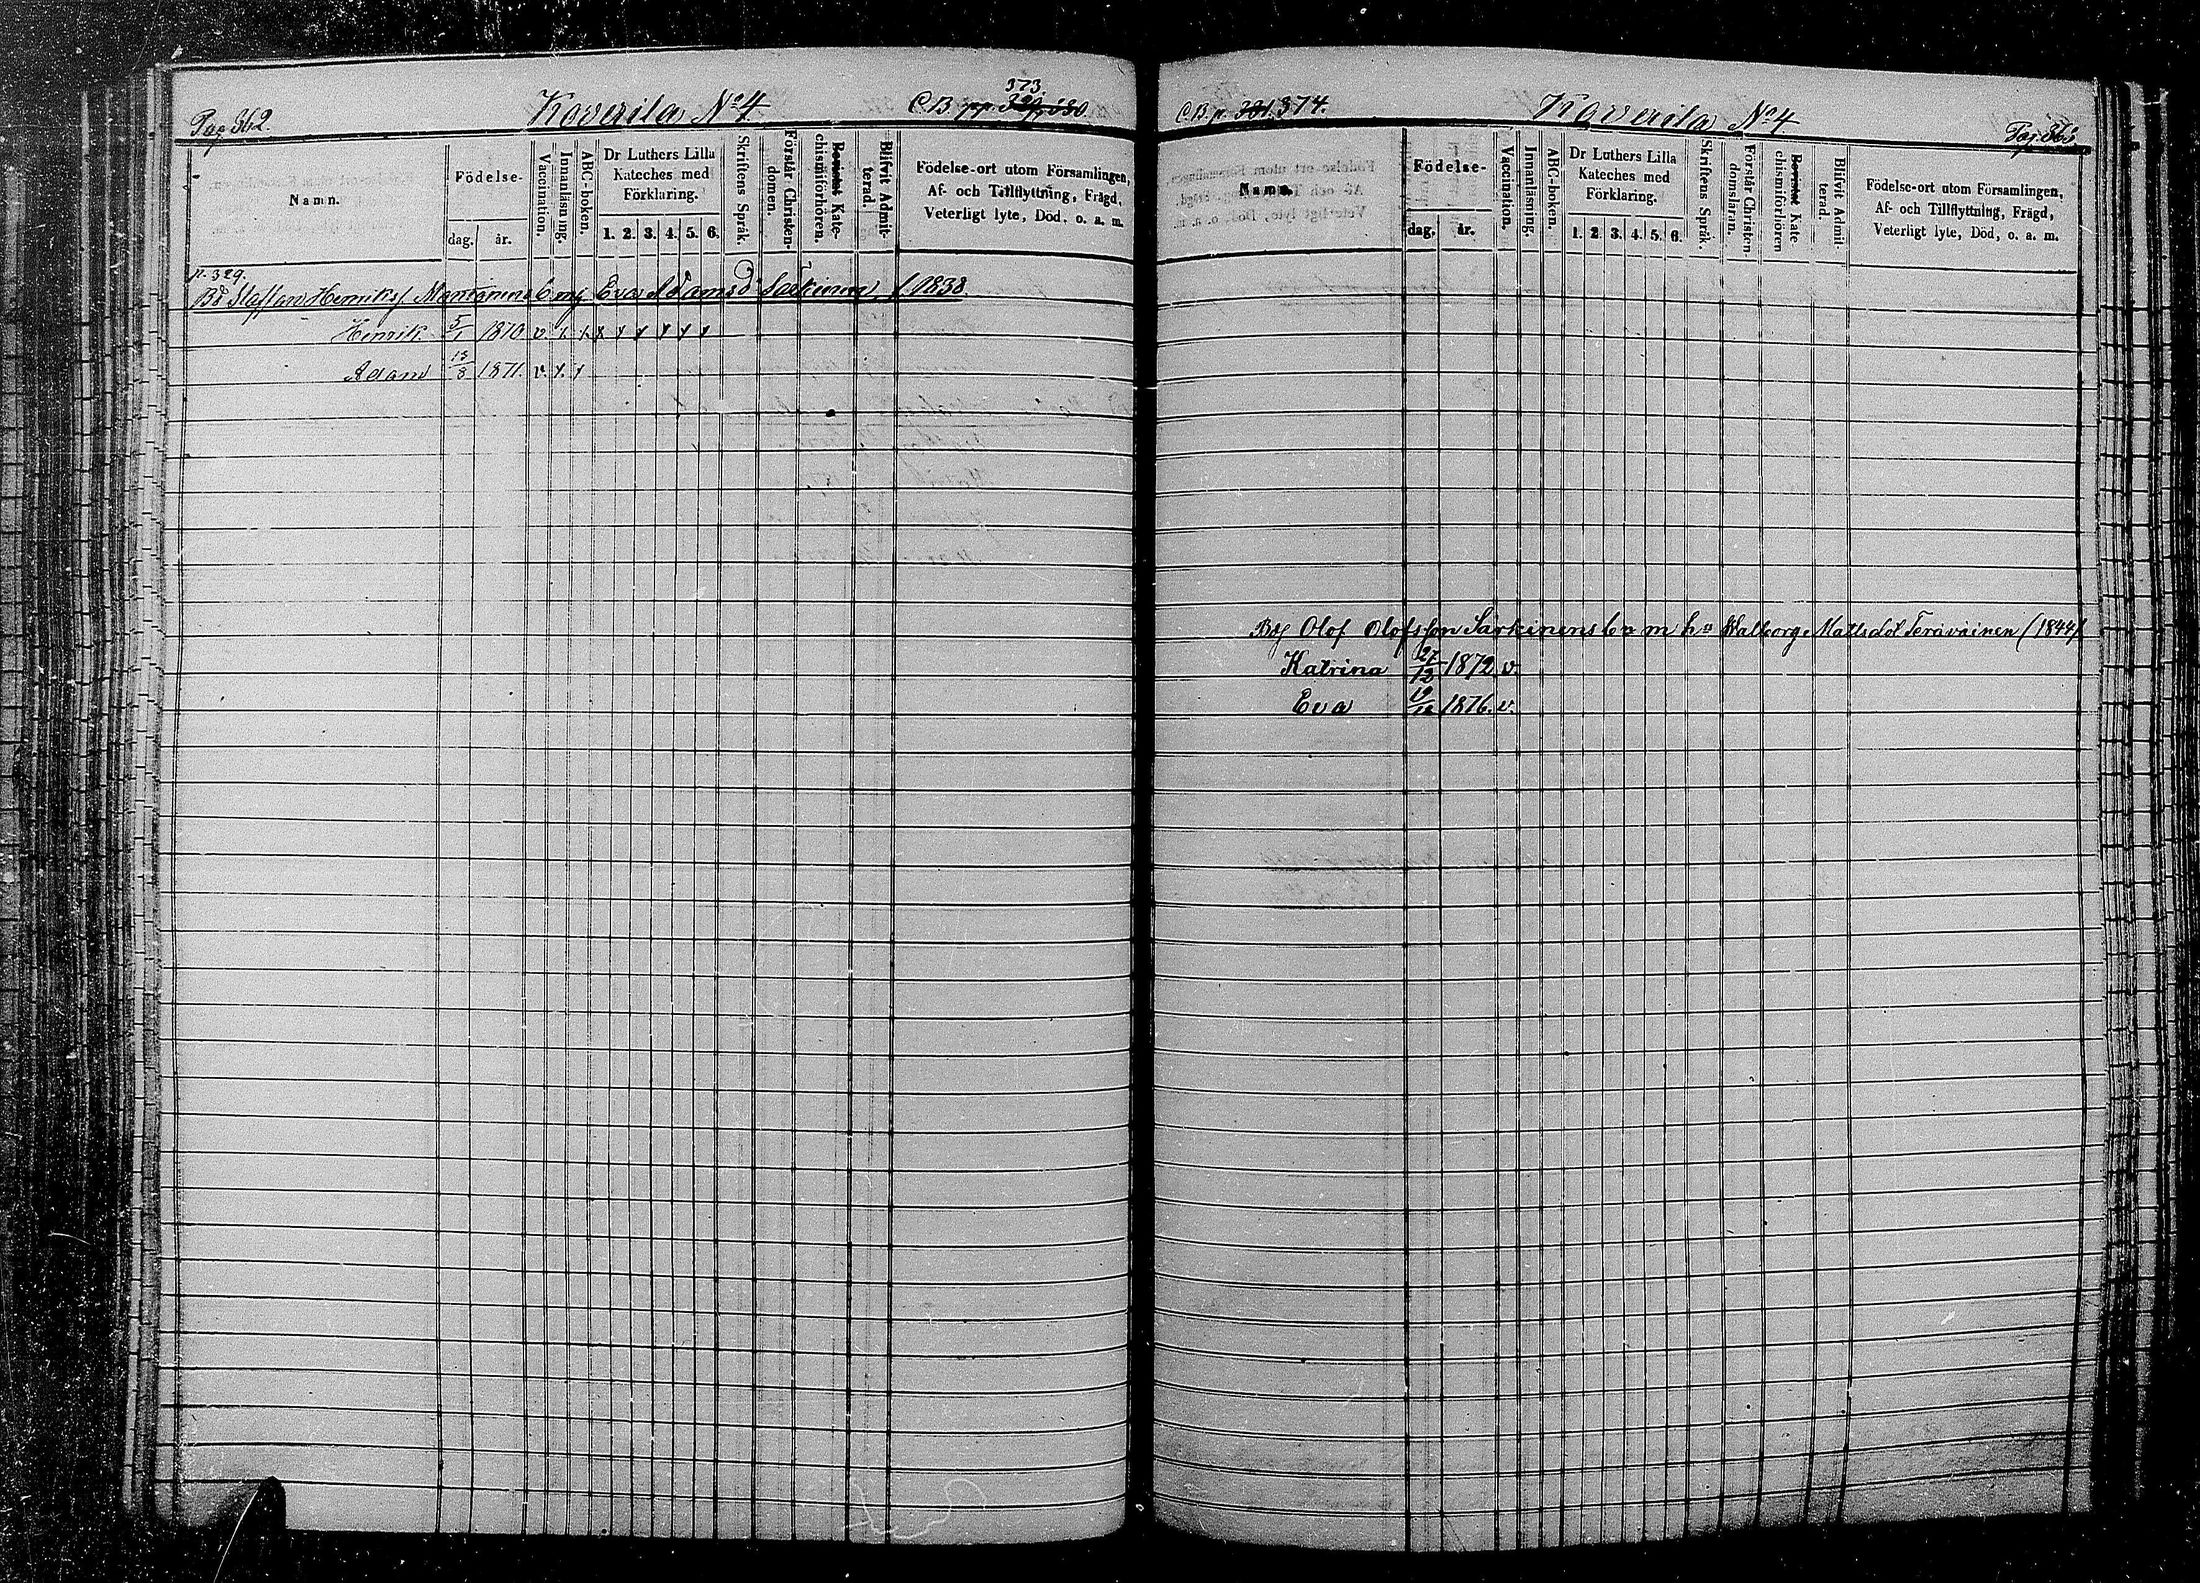 Pag 362.
Koverila No 4
C.B. pp. 329, 330. 373.
Namn.
Födelse-
dag. år.
Vaccination.
Innanläsning.
ABC-boken.
Dr Luthers Lilla
Kateches med
Förklaring.
1. 2. 3. 4. 5. 6.
Skriftens Språk.
Förstår Christen-
domen.
Bevistat Kate-
chismiförhören.
Blifvit Admit-
terad.
Födelse-ort utom Församlingen,
Af- och Tillflyttning, Frägd,
Veterligt lyte, Död, o. a. m.
p. 329.
Staffan Henrikss. Eva Adamsd. (1838.
Henrik 5/1 1870 v. x x x x x x x x
Adam 13/8 1871. v. x. x
C.B. p. 331. 374.
Koverila No 4
Pag. 363
Namn.
Födelse-
dag. år.
Vaccination.
Innanläsning.
ABC-boken.
Dr Luthers Lilla
Kateches med
Förklaring.
1. 2. 3. 4. 5. 6.
Skriftens Språk.
Förstår Christen-
domsläran.
Bevistat Kate
chismiförhören
Blifvit Admit-
terad.
Födelse-ort utom Församlingen,
Af- och Tillflyttning, Frägd,
Veterligt lyte, Död, o. a. m.
Olof Olofsson Sarkinens bn m h u Walborg Mattsdot Terävainen (1844)
Katrina 27/12 1872 v.
Eva 1876. v.